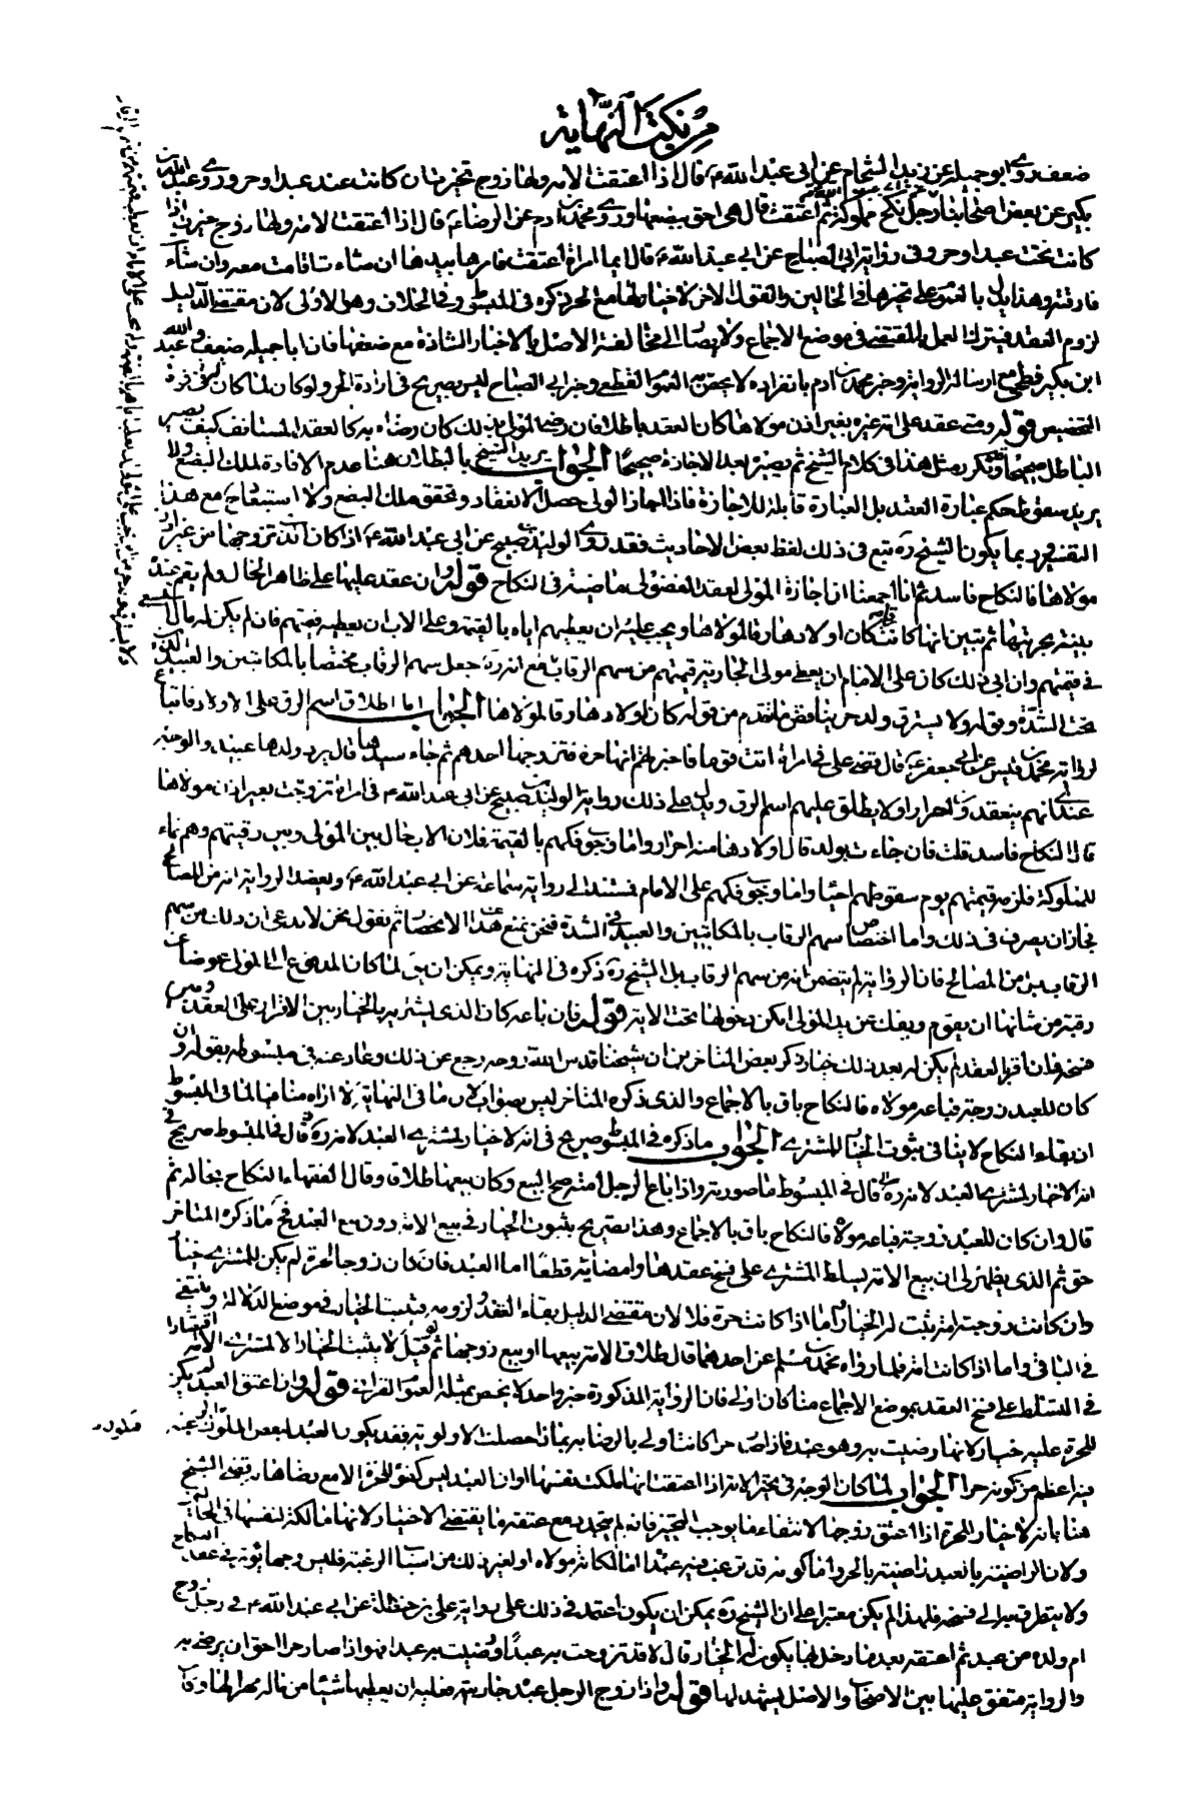 من نكت النهاية
ضعف روى ابو جميلة عن زيد الشحام عن ابى عبد الله ع قال اذا اعتقت الامة ولها زوج تخيرت ان كانت عند عبد او حر وروى عبد الله بن
بكير عن بعض اصحابنا رجل نكح مملوكة ثم اعتقت قال هى احق ببضعها وروى محمد بن ادم عن الرضا ع قال اذا اعتقت الامة ولها زوج خيرت اذا
كانت تحت عبد او حر وفى رواية ابى الصباح عن ابى عبد الله ع قال ايما امراة اعتقت فامرها بيدها ان شاءت اقامت معه وان شاءت
فارقته وهذا يدل بالعموم على تخيرها فى الحالين والقول الاخر لا خيار لها مع الحر ذكره فى المبسوط وفى الخلاف وهو الاولى لان مقتضى الدليل
لزوم العقد فيترك العمل بالمقتضى فى موضع الاجماع ولا يصار الى مخالفة الاصل بالاخبار الشاذة مع ضعفها فان ابا جميلة ضعيف وعبد الله
ابن بكير فطحى مع ارساله الرواية وخبر محمد بن ادم بانفراده لا يخص به العموم القطعى وخبر ابى الصباح ليس بصريح فى ارادة الحر ولو كان لكان فى قوة
التخصيص قوله ومتى عقد على امة غيره بغير اذن مولاها كان العقد باطلا فان رضى المولى بذلك كان رضاه به كالعقد المستانف كيف يصير
الباطل صحيحا وتكرر مثل هذا فى كلام الشيخ ثم يصير بعد الاجازة صحيحا الجواب يريد الشيخ بالبطلان هنا عدم الافادة لملك البضع ولا
يريد سقوط حكم عبارة العقد بل العبارة قابلة للاجازة فاذا اجاز المولى حصل الانعقاد وتحقق ملك البضع ولا استبعاد مع هذا
التفسير وربما يكون الشيخ ره تبع فى ذلك لفظ بعض الاحاديث فقد روى الوليد بن صبيح عن ابى عبد الله ع اذا كان الذى تزوجها من غير اذن
مولاها فالنكاح فاسد ثم انا اجمعنا ان اجازة المولى لعقد الفضولى ماضية فى النكاح قوله وان عقد عليها على ظاهر الحال ولم يقم عنده
بينة بحريتها ثم تبين انها كانت رقا كان اولادها رقا لمولاها ويجب عليه ان يعطيهم اياه بالقيمة وعلى الاب ان يعطيه قيمتهم فان لم يكن له مال استسعى
فى قيمتهم وان ابى ذلك كان على الامام ان يعطى مولى الجارية قيمتهم من سهم الرقاب مع انه ره جعل سهم الرقاب مختصا بالمكاتبين والعبيد الذين
تحت الشدة وقوله ولا يسترق ولد حر يناقض ما تقدم من قوله كان اولادها رقا لمولاها الجواب اما اطلاق اسم الرق على الاولاد فاتباعا
لرواية محمد بن قيس عن ابى جعفر ع قال قضى على فى امراة اتت قوما فاخبرتهم انها حرة فتزوجها احدهم ثم جاء سيدها قال يرد ولدها عبيدا والوجه
عندى انهم ينعقدون احرارا ولا يطلق عليهم اسم الرق ويدل على ذلك رواية الوليد بن صبيح عن ابى عبد الله ع فى امراة تزوجت بغير اذن مولاها
قال النكاح فاسد قلت فان جاءت بولد قال اولادها منه احرار واما وجوب فكهم بالقيمة فلان الاب حال بين المولى وبين رقيتهم وهم نماء
للمملوكة فلزمه قيمتهم يوم سقوطهم احياء واما وجوب فكهم على الامام فمستنده الى رواية سماعة عن ابى عبد الله ع ويعضد الرواية انه من المصالح
فجاز ان يصرف فى ذلك واما اختصاص سهم الرقاب بالمكاتبين والعبيد فى الشدة فنحن نمنع هذا الانحصار ثم نقول نحن لا ندعى ان ذلك من سهم
الرقاب بل من المصالح فان الرواية لم يتضمن انه من سهم الرقاب بل الشيخ ره ذكره فى النهاية ويمكن ان يق لما كان المدفوع الى المولى عوضا عن
رقبة من شانها ان يقوم ويفك عن يد المولى امكن دخولها تحت الاية قوله فان باعه كان الذى يشتريه بالخيار بين الاقرار على العقد وبين
فسخه فان اقر العقد لم يكن له بعد ذلك خيار ذكر بعض المتاخرين ان شيخنا قدس الله روحه رجع عن ذلك وعاد عنه فى مبسوطه بقوله وان
كان للعبد زوجة فباعه مولاه فالنكاح باق بالاجماع والذى ذكره المتاخر ليس بصواب لان ما فى النهاية لا اراه منافيا لما فى المبسوط
ان بقاء النكاح لا ينافى ثبوت الخيار للمشترى الجواب ما ذكره فى المبسوط صريح فى انه لا خيار لمشترى العبد لانه ره قال فى المبسوط صريح فى
انه لا خيار لمشترى العبد لانه ره قال فى المبسوط ما صورته واذا باع الرجل امته صح البيع وكان بيعها طلاقا وقال الفقهاء النكاح بحاله ثم
قال وان كان للعبد زوجة فباعه مولاه فالنكاح باق بالاجماع وهذا تصريح بثبوت الخيار فى بيع الامة دون بيع العبد فح ما ذكره المتاخر
حق ثم الذى يظهر لى ان بيع الامة يسلط المشترى على فسخ عقدها وامضائه قطعا اما العبد فان كان زوجا لحرة لم يكن للمشترى خيار
وان كانت زوجته امة يثبت له الخيار اما اذا كانت حرة فلا لان مقتضى الدليل بقاء العقد ولزومه فيثبت الخيار فى موضع الدلالة وينتفى
فى الباقى واما اذا كانت امة فلما رواه محمد بن مسلم عن احدهما قال طلاق الامة بيعها او بيع زوجها ثم لو قيل لا يثبت الخيار الا لمشترى الامة اقتصارا
فى التسلط على فسخ العقد بموضع الاجماع مناكان اولى فان الرواية المذكورة خبر واحد لا يخص بمثله العموم القرانى قوله وان اعتق العبد لم يكن
للحرة عليه خيار لانها رضيت به وهو عبد فاذا صار حرا كانت اولى بالرضا به بما اذا حصلت الاولوية فقد يكون العبد لبعض الملوك
فيه اعظم من كونه حرا الجواب لما كان الوجه فى تخير الامة اذا اعتقت انها ملكت نفسها او ان العبد ليس كفوا للحرة الا مع رضاها قضى الشيخ
هنا بانه لا خيار للحرة اذا اعتق زوجها لانتفاء ما يوجب التخير فانه لم يتجدد مع عتقه ما يقتضى الاختيار لانها مالكة لنفسها فى الحالين
ولان الراضية بالعبد راضية بالحر واما كونه قد ترغب فيه عبدا لمكانة مولاه او لغير ذلك من اسباب الرغبة فليس وجها يؤثر فى عقد النكاح
ولا يتطرق به الى فسخه فلهذا لم يكن معتبرا على ان الشيخ ره يمكن ان يكون اعتمد فى ذلك على رواية على بن حنظلة عن ابى عبد الله ع فى رجل زوج
ام ولده من عبد ثم اعتقه بعد ما دخل بها يكون لها الخيار قال لا قد تزوجت به عبدا ورضيت به عبدا فهو اذا صار حرا احق ان يرضى به
والرواية متفق عليها بين الاصحاب والاصل يشهد لها قوله واذا زوج الرجل عبده جاريته فعليه ان يعطيها شيئا من ماله مهرا لها وقاب